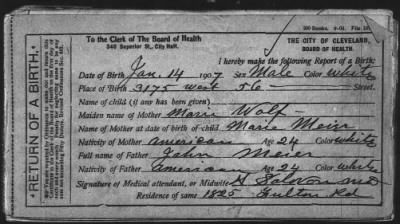 200 Books. 9-04.
To the Clerk of The Board of Health
THE CITY OF CLEVELAND,
346 Superior St., City Hall.
BOARD OF HEALTH.
I hereby make the following Report of a Birth:
Date of Birth Jan. 14 1907 Sex Male Color white
Place of Birth 3175 West 56 Street.
Name of child (if any has been given)
Maiden name of Mother Marie Wolf
Name of Mother at date of birth of child Marie Meier
Nativity of Mother american Age 24 Color white
Full name of Father John Meier
Nativity of Father american Age 24 Color white
Signature of Medical attendant, or Midwife
Residence of same 1825 Fulton Rd
RETURN OF A BIRTH.